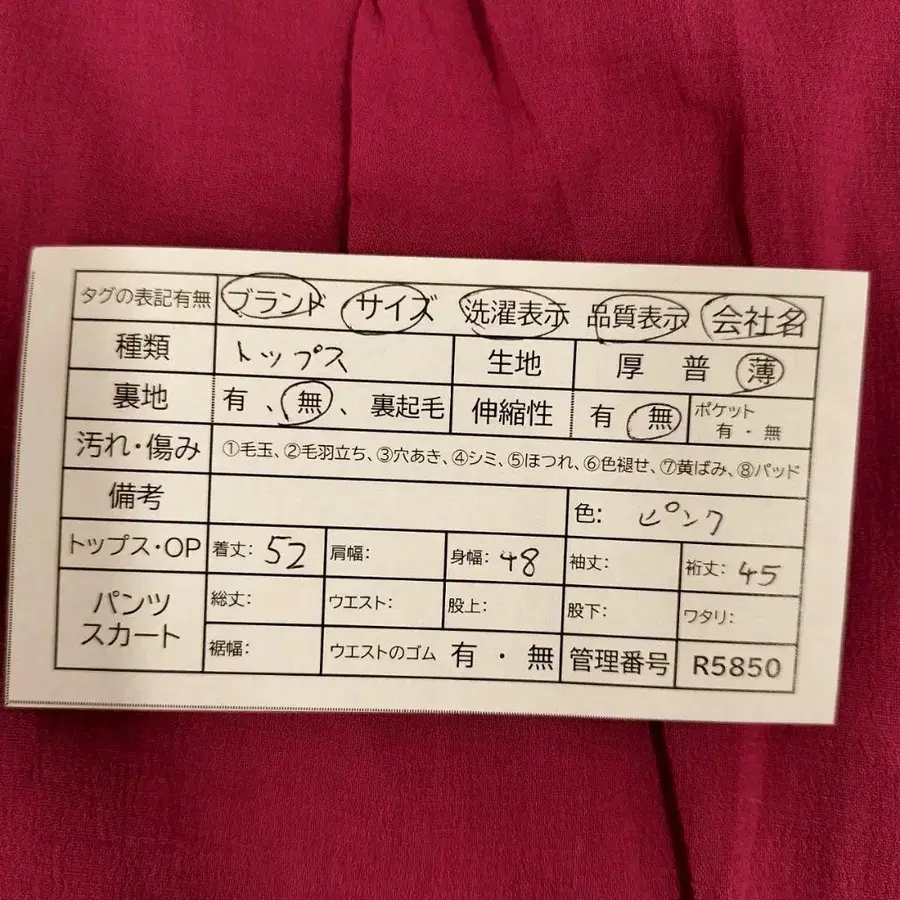 タグの表記有無 ブランド サイズ 洗濯表示 品質表示 会社名
種類 トップス 生地 厚 普 薄
裏地 有、無、裏起毛 伸縮性 有 無 ポケット 有・無
汚れ・傷み ①毛玉、②毛羽立ち、③穴あき、④シミ、⑤ほつれ、⑥色褪せ、⑦黄ばみ、⑧パッド
備考 色: ピンク
トップス・OP 着丈: 52 肩幅: 身幅: 48 袖丈: 裄丈: 45
パンツ スカート 総丈: ウエスト: 股上: 股下: ワタリ:
裾幅: ウエストのゴム 有・無 管理番号 R5850